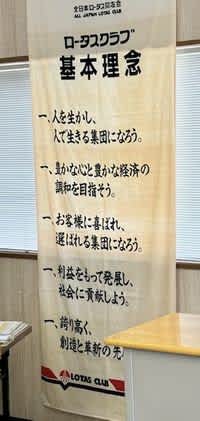 全日本ロータス同友会
ALL JAPAN LOTAS CLUB
ロータスクラブ
基本理念
一、人を生かし、
人で生きる集団になろう。
一、豊かな心と豊かな経済の
調和を目指そう。
一、お客様に喜ばれ、
選ばれる集団になろう。
一、利益をもって発展し、
社会に貢献しよう。
一、誇り高く、
創造と革新の先
LOTAS CLUB